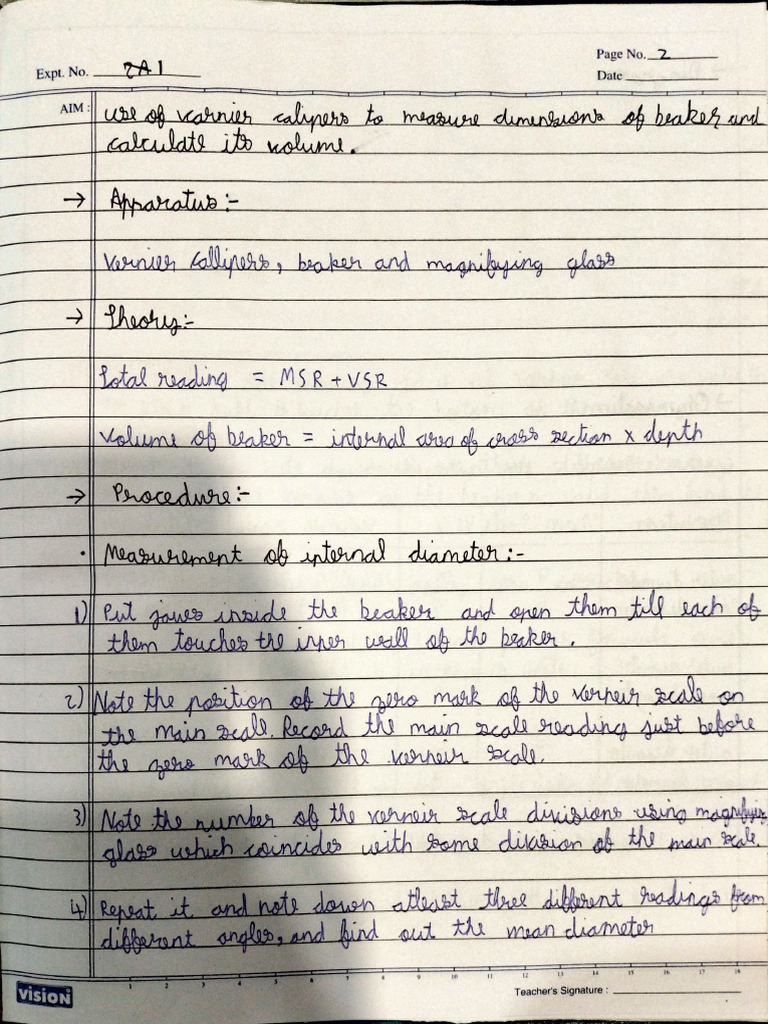 Page No. 2
Expt. No. 2A1
Date
AIM : use of varnier calipers to measure dimensions of beaker, and
calculate its volume.
→ Apparatus:-
Vernier Callipers, beaker and magnifying glass
→ Theory:-
Total reading = MSR + VSR
Volume of beaker = internal area of cross section x depth
→ Procedure:-
· Measurement of internal diameter:-
1) Put jaws inside the beaker and open them till each of
them touches the inner wall of the beaker.
2) Note the position of the zero mark of the verneir scale on
the main scale. Record the main scale reading just before
the zero mark of the verneir scale.
3) Note the number of the verneir scale divisions using magnifying
glass which coincides with some division of the main scale.
4) Repeat it and note down atleast three different readings from
different angles, and find out the mean diameter
1 2 3 4 5 6 7 8 9 10 11 12 13 14 15 16 17 18
VISION
Teacher's Signature :